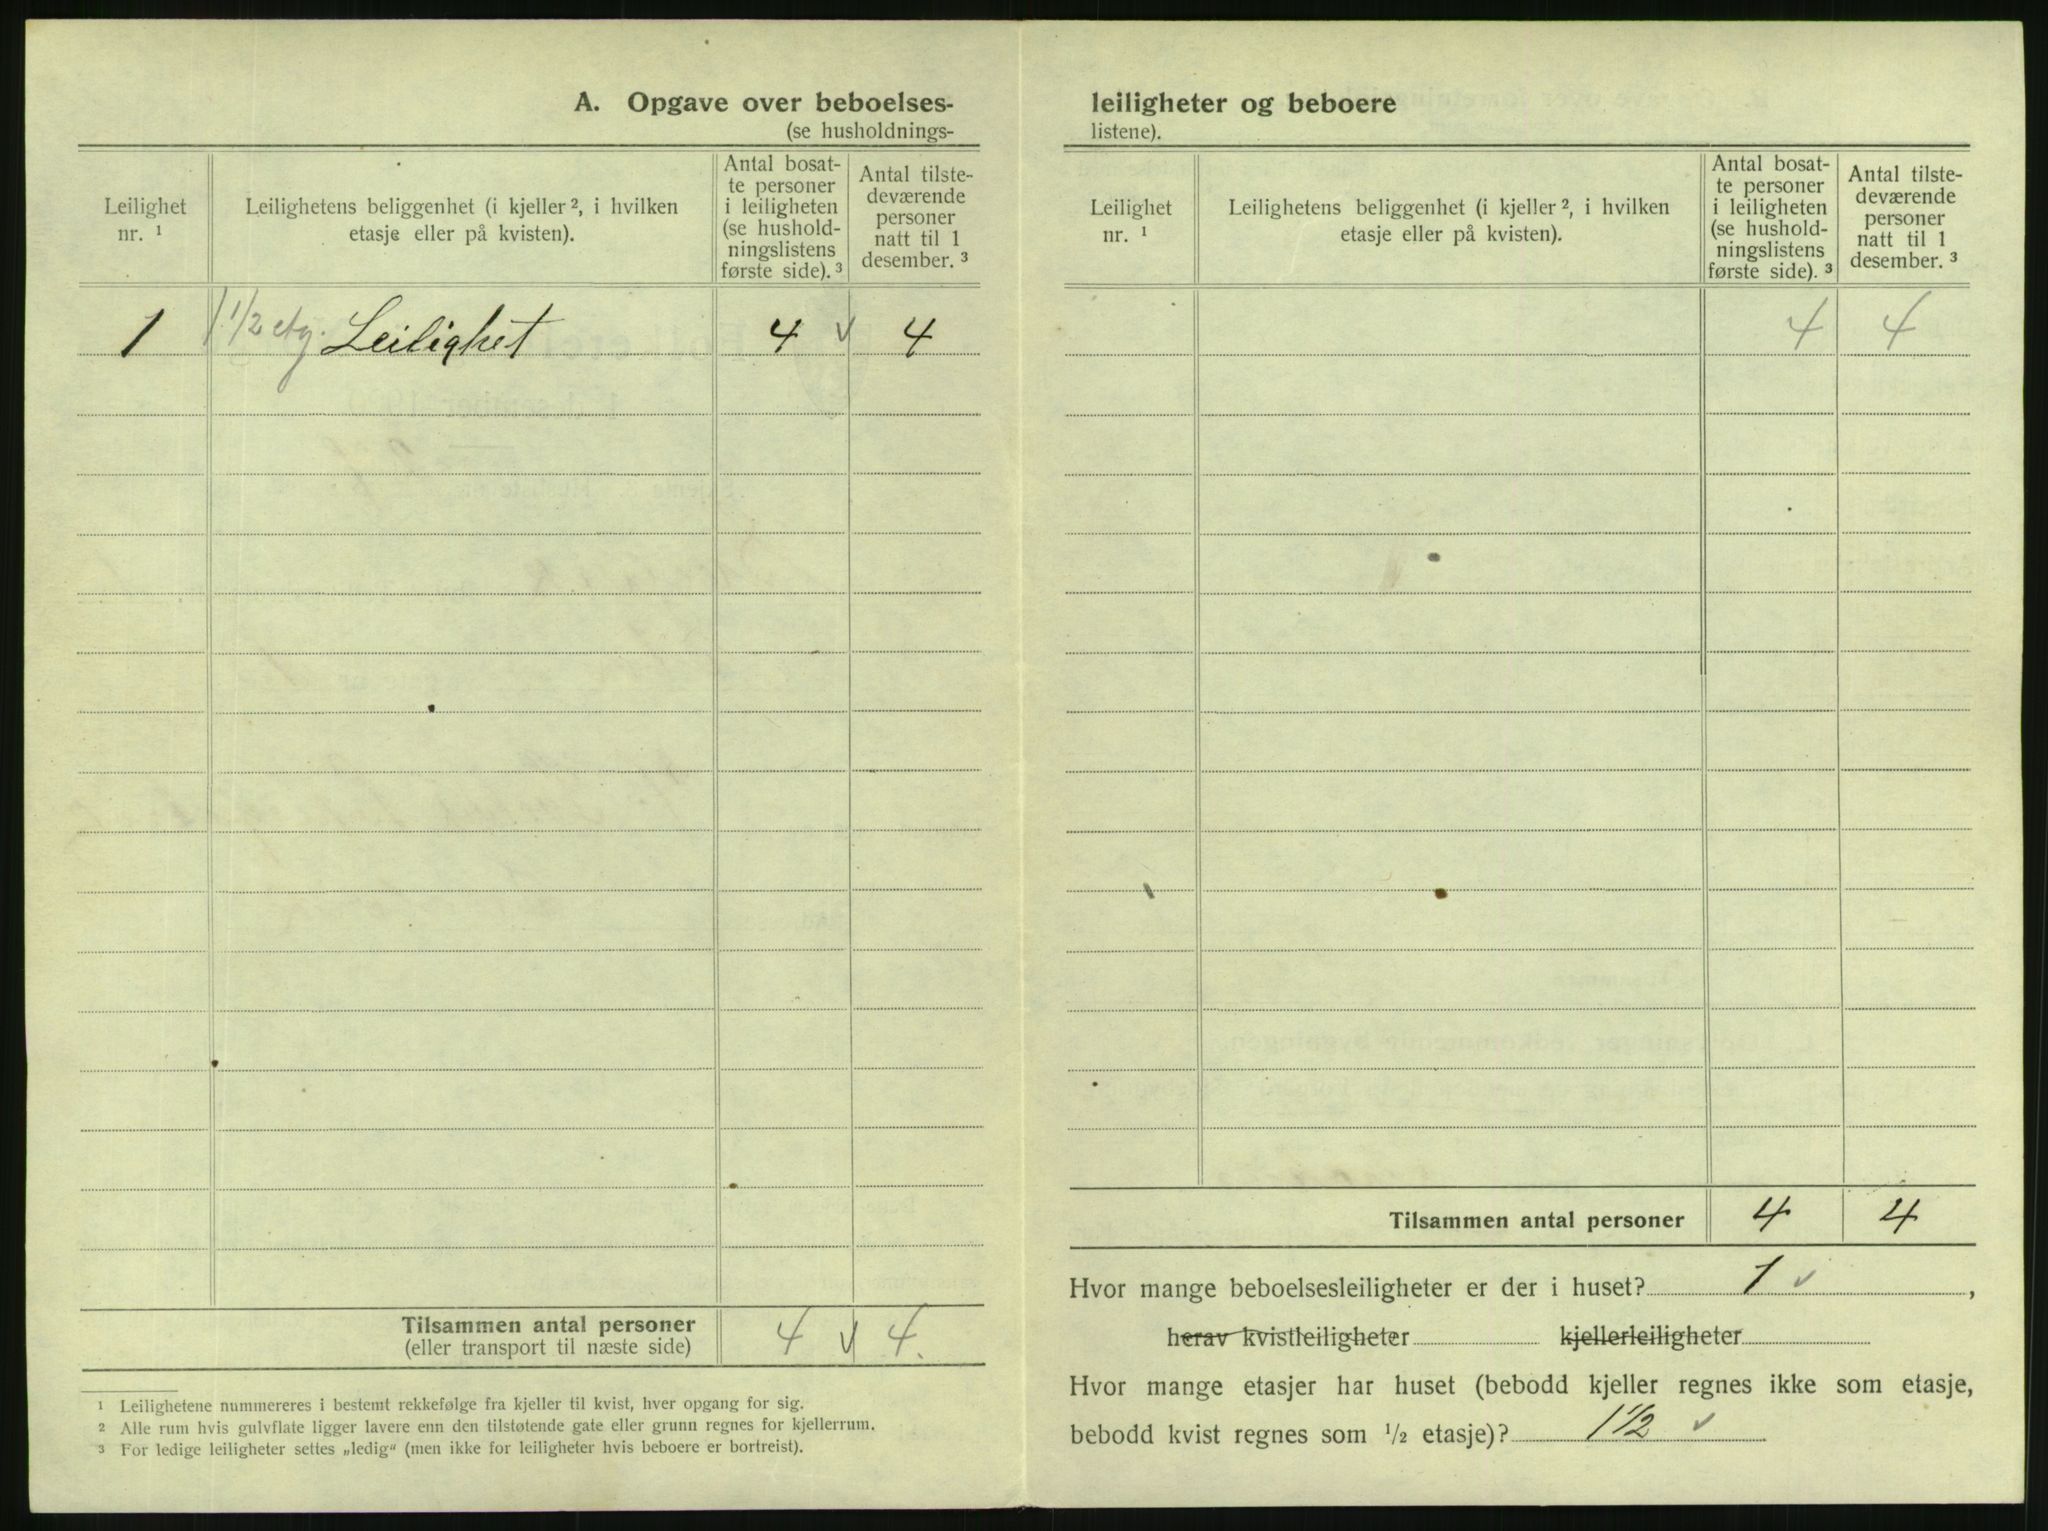 A. Opgave over beboelses-
(se husholdnings-
Leilighet nr. 1
Leilighetens beliggenhet (i kjeller 2, i hvilken
etasje eller på kvisten).
Antal bosat-
te personer
i leiligheten
(se hushold-
ningslistens
første side). 3
Antal tilste-
deværende
personer
natt til 1
desember. 3
1 1 1/2 etg. Leilighet 4 v 4
Tilsammen antal personer 4 v 4.
(eller transport til næste side)
1 Leilighetene nummereres i bestemt rekkefølge fra kjeller til kvist, hver opgang for sig.
2 Alle rum hvis gulvflate ligger lavere enn den tilstøtende gate eller grunn regnes for kjellerrum.
3 For ledige leiligheter settes „ledig" (men ikke for leiligheter hvis beboere er bortreist).
leiligheter og beboere
listene).
Leilighet
nr. 1
Leilighetens beliggenhet (i kjeller 2, i hvilken
etasje eller på kvisten).
Antal bosat-
te personer
i leiligheten
(se hushold-
ningslistens
første side). 3
Antal tilste-
deværende
personer
natt til 1
desember. 3
4 4
Tilsammen antal personer 4 4
Hvor mange beboelsesleiligheter er der i huset? 1 v ,
herav kvistleiligheter kjellerleiligheter
Hvor mange etasjer har huset (bebodd kjeller regnes ikke som etasje,
bebodd kvist regnes som 1/2 etasje)? 1 1/2 v